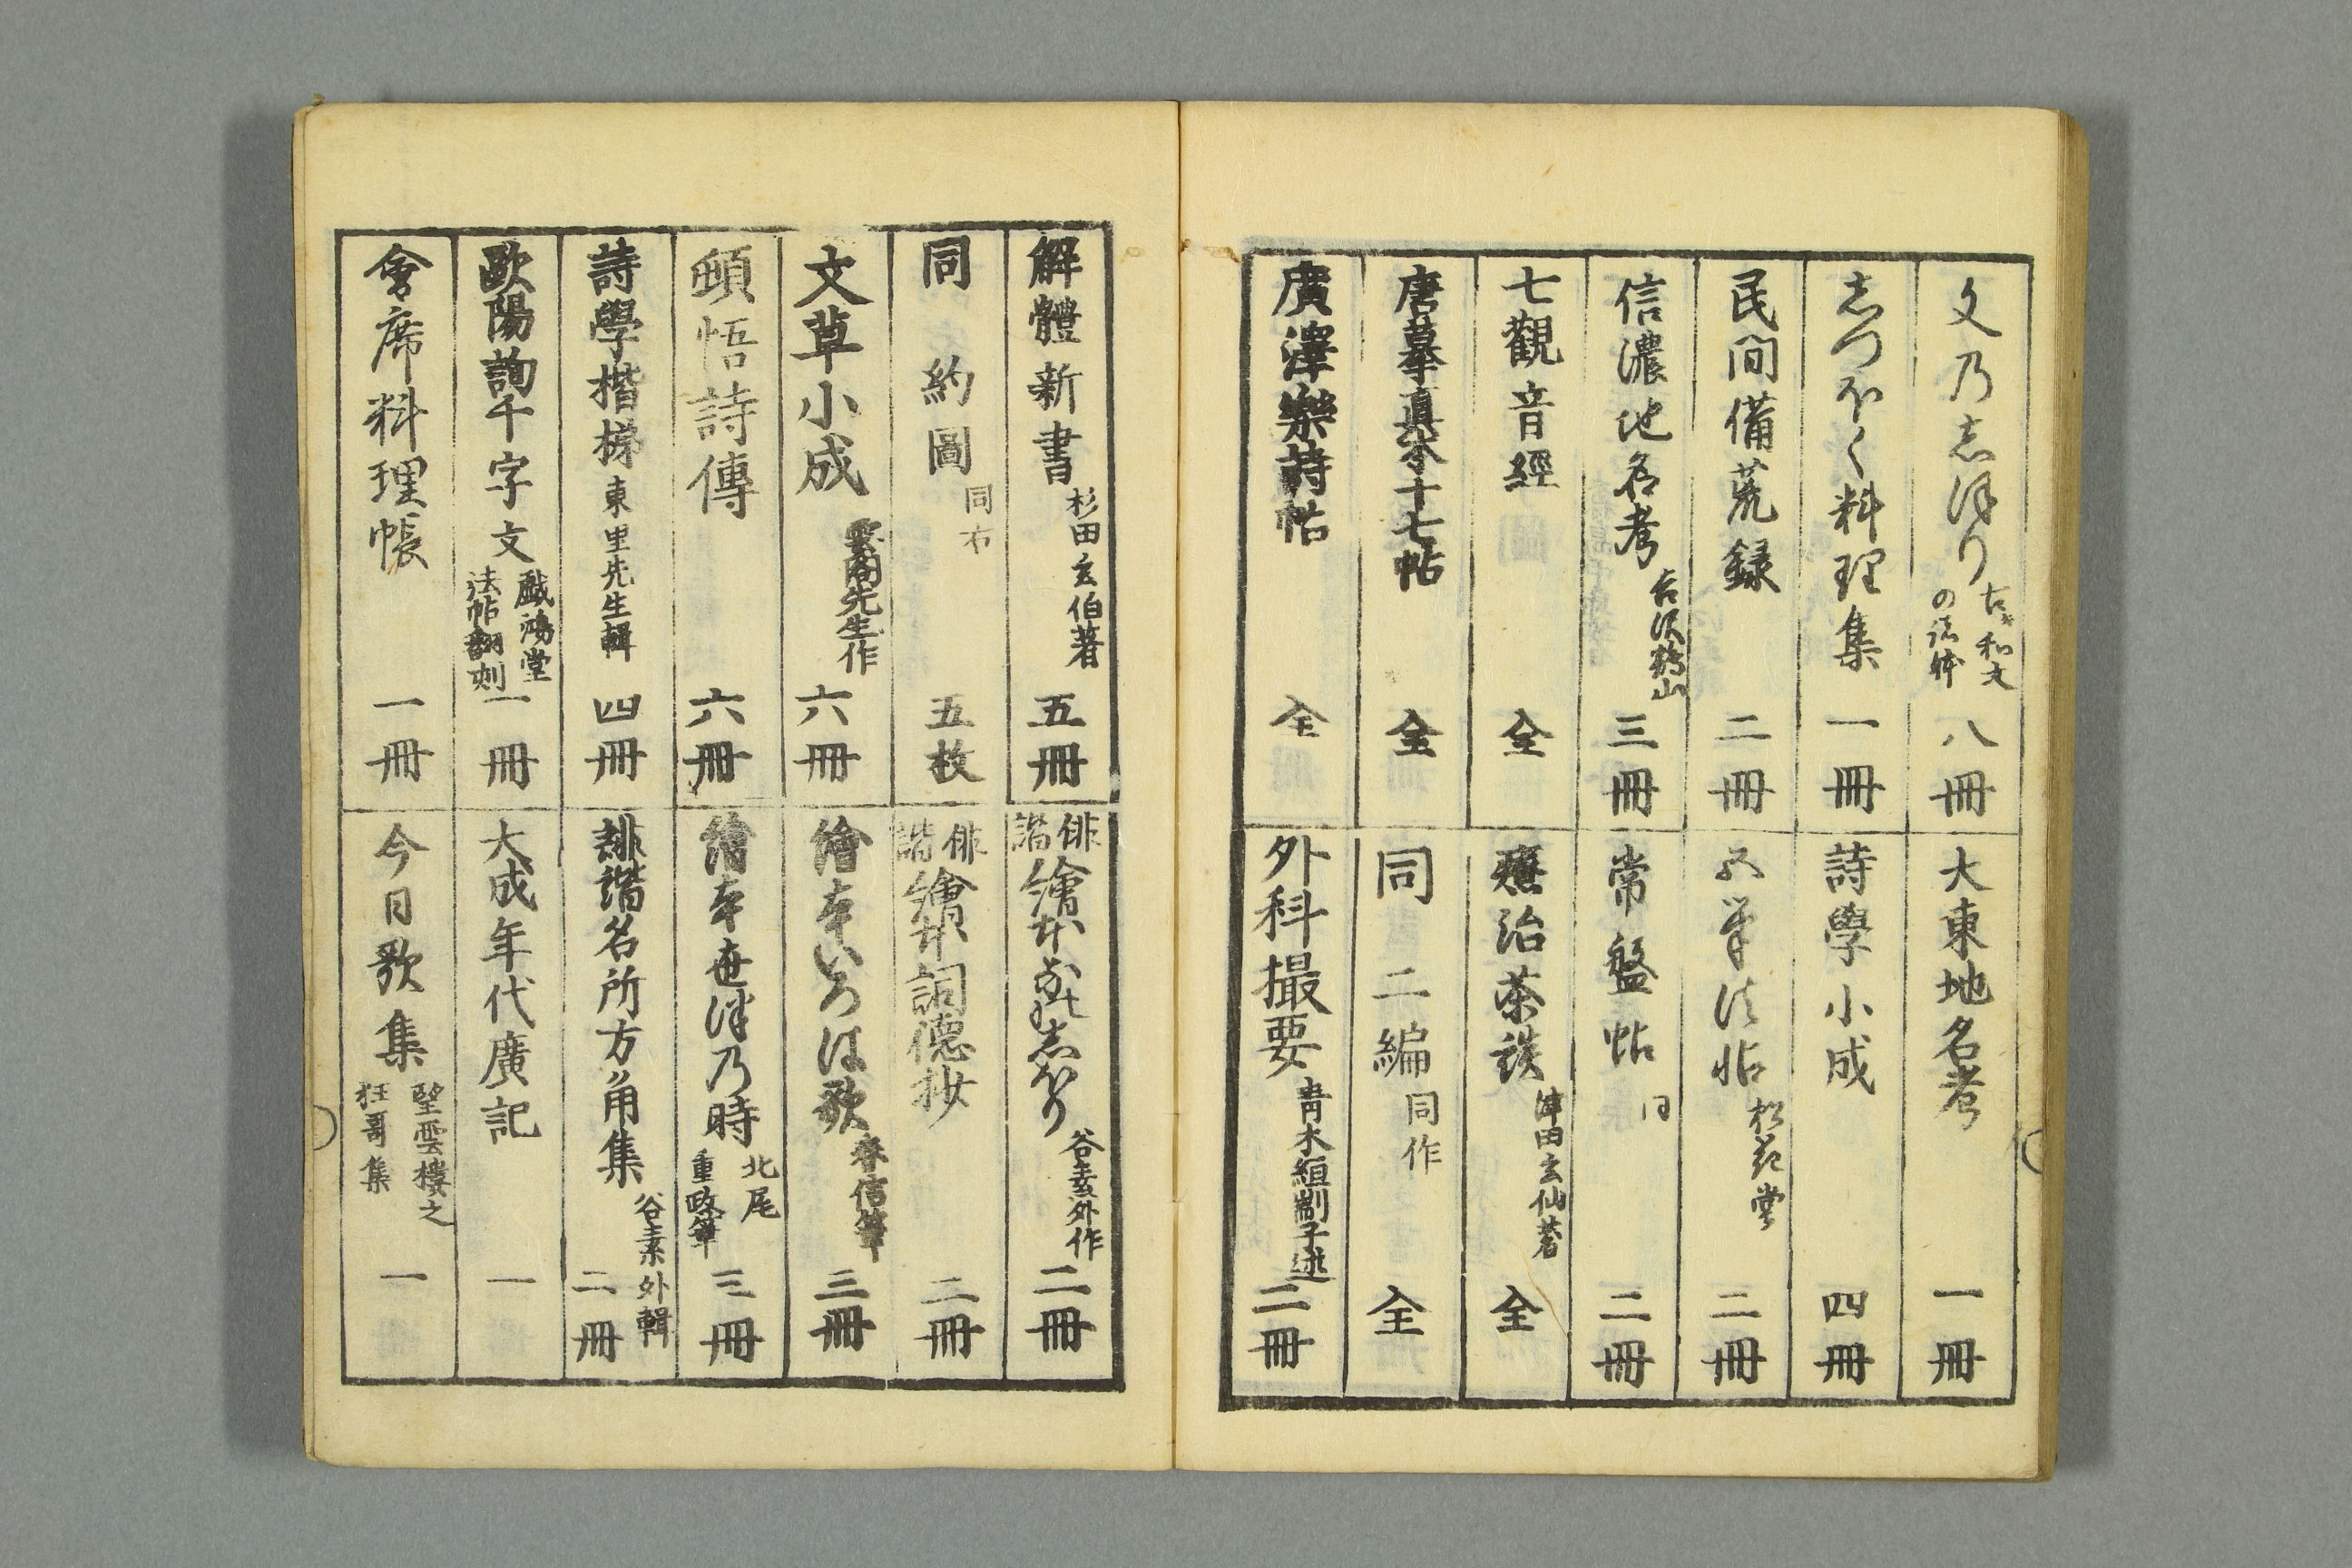 文乃志津り 古き和文の諸躰 八冊
志つほく料理集 一冊
民間備荒録 二冊
信濃地名考 吉沢鶏山 三冊
七觀音經 全
唐摹真本十七帖 全
廣澤樂詩帖 全
大東地名考 一冊
詩學小成 四冊
五筆法帖 松花堂 二冊
常盤帖 同 二冊
療治茶談 津田玄仙著 全
同 二編 同作 全
外科撮要 青木 述 二冊
解體新書 杉田玄伯著 五冊
同 約圖 同右 五枚
文草小成 先生作 六冊
頓悟詩傳 六冊
詩學楷梯 東里先生輯 四冊
歐陽詢千字文 戯鴻堂法帖翻刻 一冊
會席料理帳 一冊
俳諧繪本 志をり 谷素外作 二冊
俳諧繪本詞德抄 二冊
繪本いろは歌 春信筆 三冊
繪本世津乃時 北尾重政筆 三冊
誹諧名所方角集 谷素外輯 二冊
大成年代廣記 一
今日歌集 望雲樓之狂哥集 一